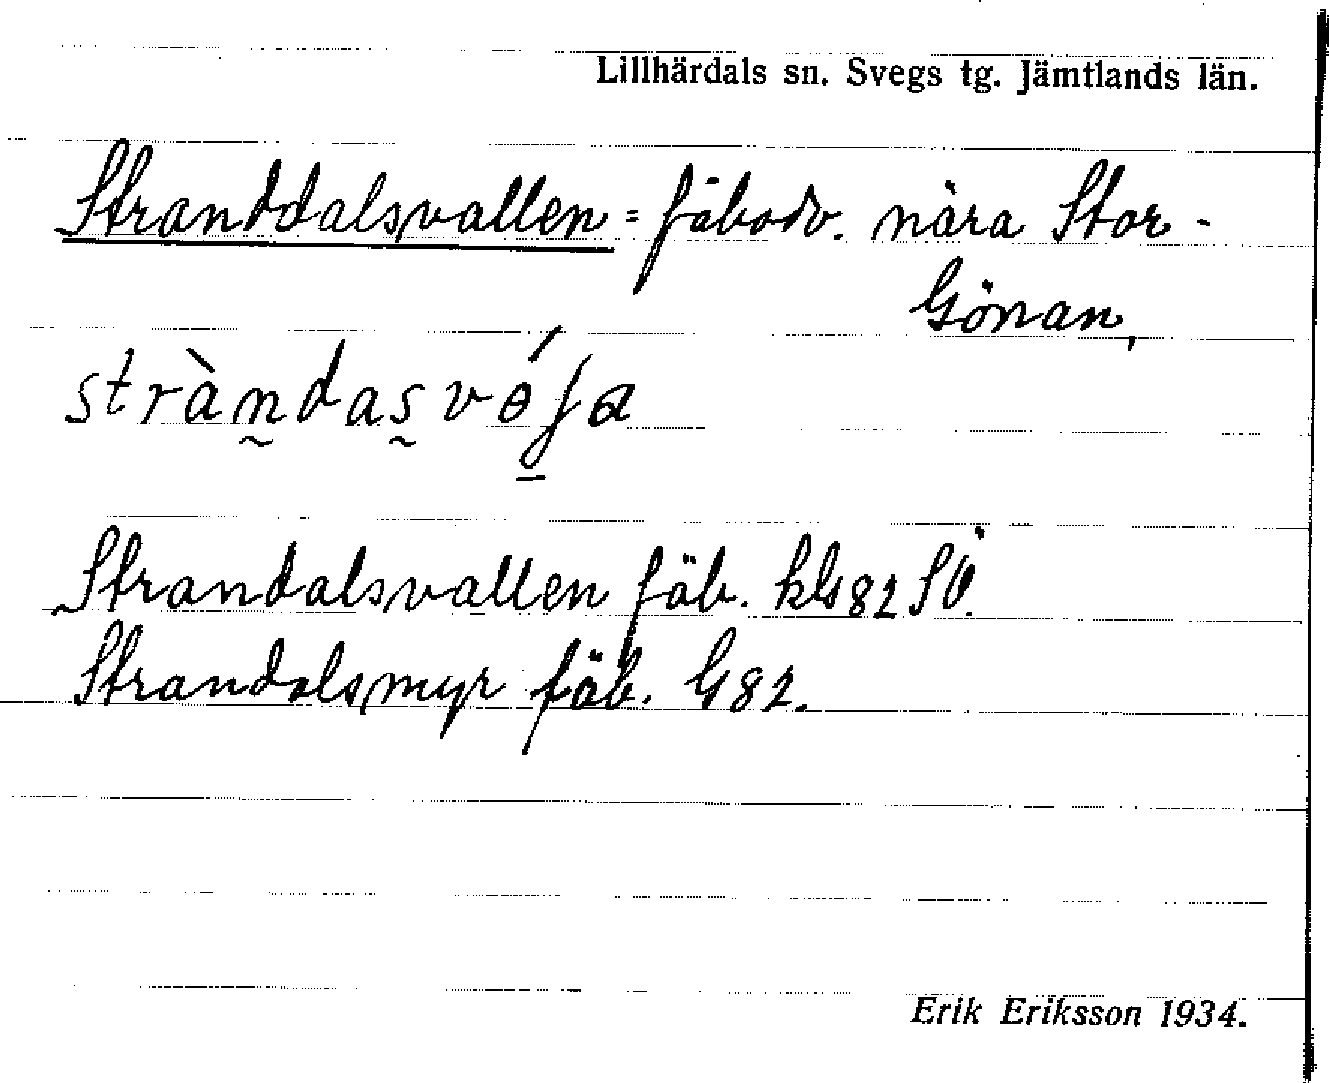 Lillhärdals sn. Svegs tg. Jämtlands län.
Stranddalsvallen = fäbodv. nära Stor-
Gönan,
stràn̰das̰
Strandalsvallen fäb. kG82SÖ.
Strandalsmyr fäb. G82.
Erik Eriksson 1934.